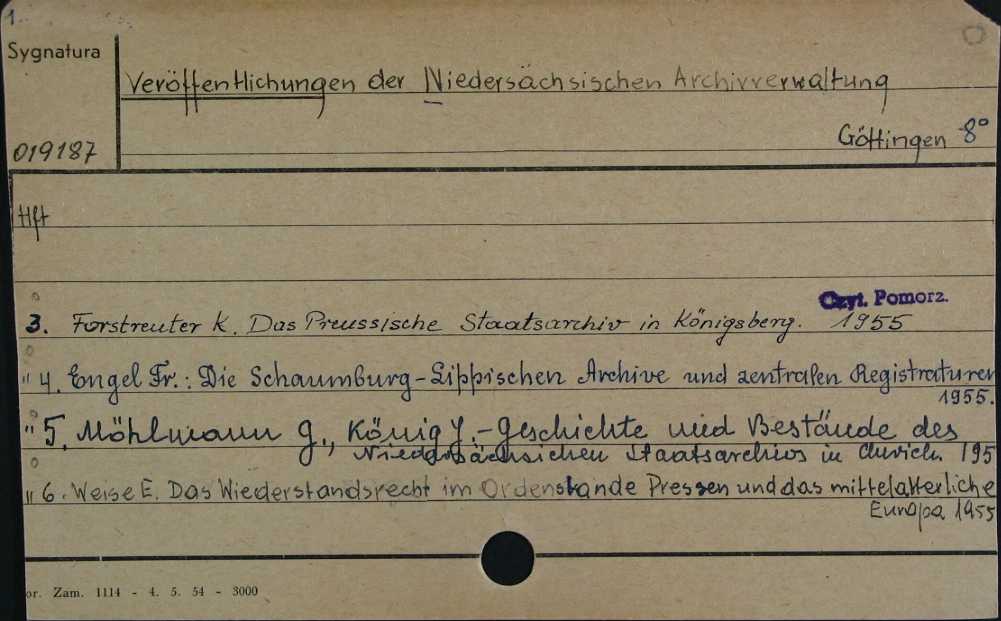 1.
Sygnatura
Veröffentlichungen der Niedersächsischen Archivverwaltung
Göttingen 8°
019187
Hft
Czyt. Pomorz.
3. Forstreuter K. Das Preussische Staatsarchiv in Königsberg. 1955
" 4. Engel Fr.: Die Schaumburg-Lippischen Archive und zentralen Registraturen
1955.
" 5. Möhlmann G., König J. - Geschichte und Bestände des
Niedersächsichen Staatsarchivs in Aurich. 195
" 6. Weise E. Das Wiederstandsrecht im Ordenslande Pressen und das mittelalterliche
Europa 1955
or. Zam. 1114 - 4. 5. 54 - 3000